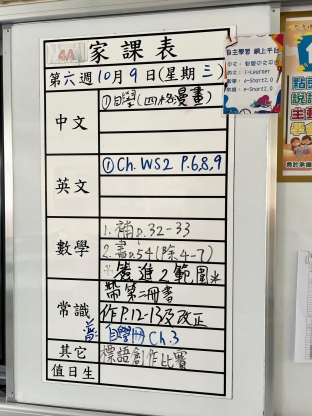 4A 家課表
第六週10月9日(星期三)
中文 ①自學(四格漫畫)
英文 ①Ch.WS2 P.6,8,9
數學 1.補p.32-33
2.書p.54(除4-7)
*簽進2範圍*
常識 帶第二冊書
作P.12-13及改正
自學冊Ch.3
其它 標語創作比賽
值日生
自主學習 網上平台
英文：i-Learner
數學：e-Smart2.0
常識：e-Smart2.0